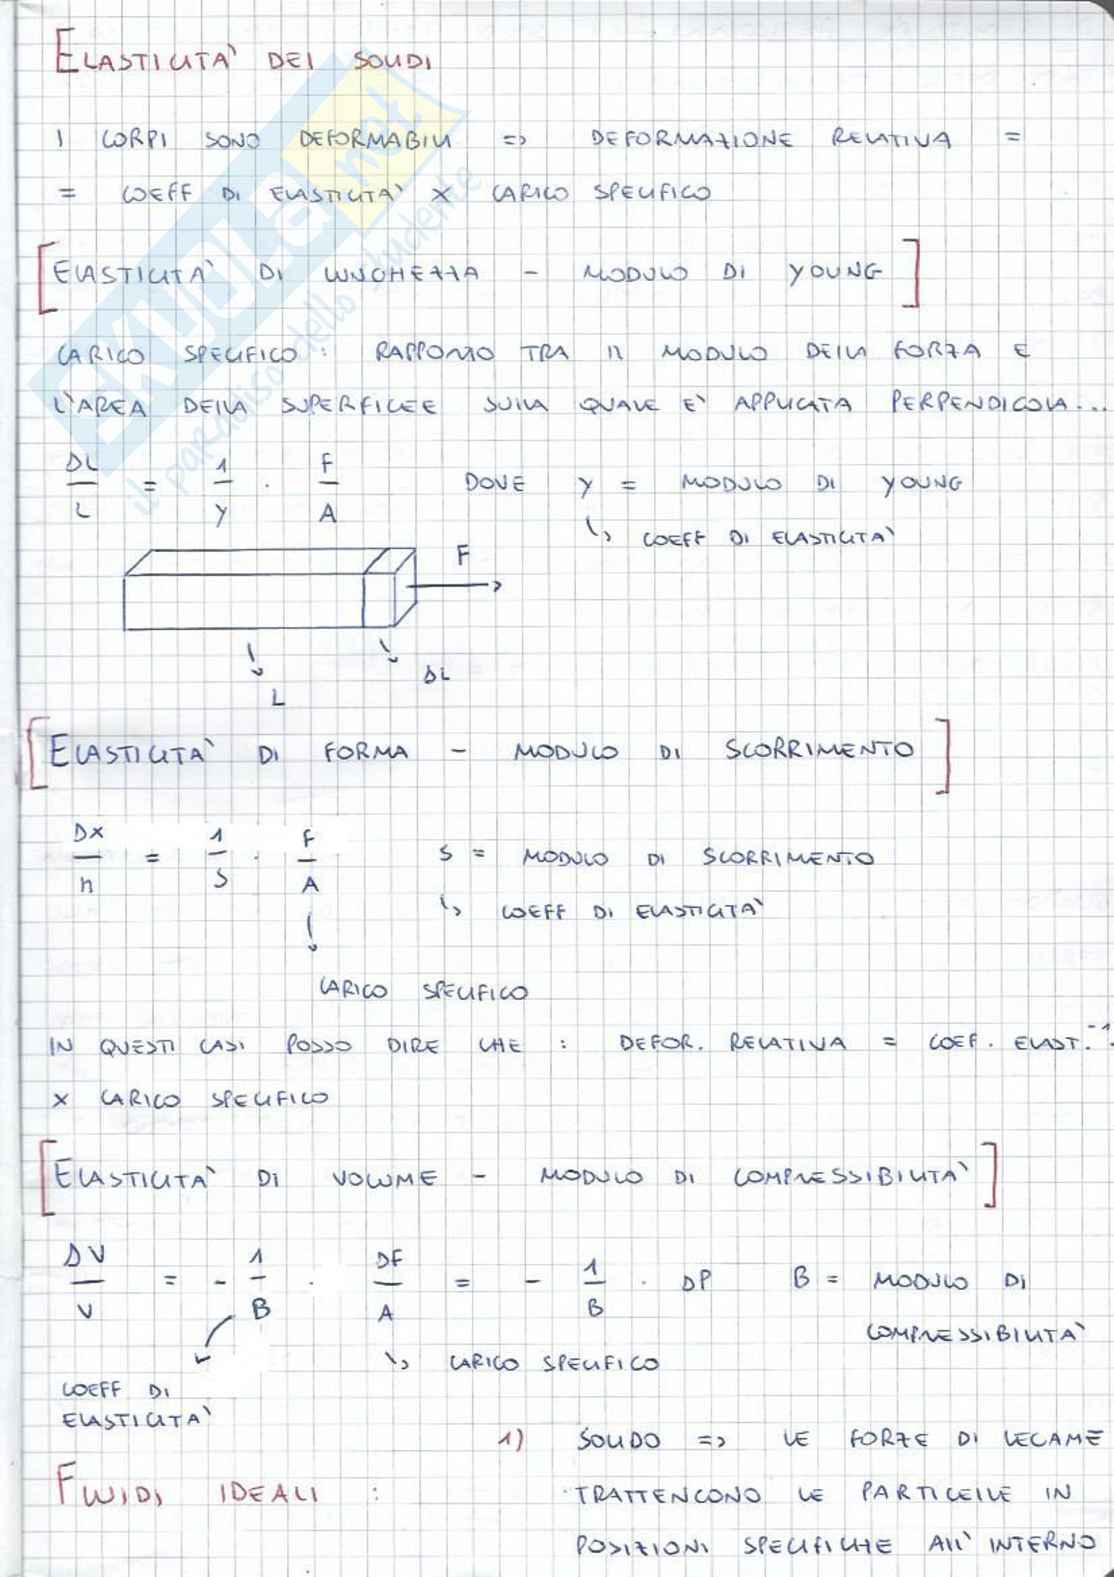 ELASTICITA' DEI SOLIDI
I CORPI SONO DEFORMABILI => DEFORMAZIONE RELATIVA =
= COEFF DI ELASTICITA' X CARICO SPECIFICO
[ELASTICITA' DI LUNGHEZZA - MODULO DI YOUNG]
CARICO SPECIFICO : RAPPORTO TRA IL MODULO DELLA FORZA E
L'AREA DELLA SUPERFICEE SULLA QUALE E' APPLICATA PERPENDICOLA...
DL/L = 1/Y · F/A DOVE Y = MODULO DI YOUNG
↳ COEFF DI ELASTICITA'
F
DL
L
[ELASTICITA' DI FORMA - MODULO DI SCORRIMENTO]
DX/h = 1/S · F/A S = MODULO DI SCORRIMENTO
↳ COEFF DI ELASTICITA'
CARICO SPECIFICO
IN QUESTI CASI POSSO DIRE CHE : DEFOR. RELATIVA = COEF. ELAST.⁻¹
X CARICO SPECIFICO
[ELASTICITA' DI VOLUME - MODULO DI COMPRESSIBILITA']
DV/V = - 1/B · DF/A = - 1/B · DP B = MODULO DI
COMPRESSIBILITA'
↳ CARICO SPECIFICO
COEFF DI
ELASTICITA'
1) SOLIDO => LE FORZE DI LEGAME
FLUIDI IDEALI : TRATTENGONO LE PARTICELLE IN
POSIZIONI SPECIFICHE ALL'INTERNO
SKUOLA.net
il paradiso dello studente